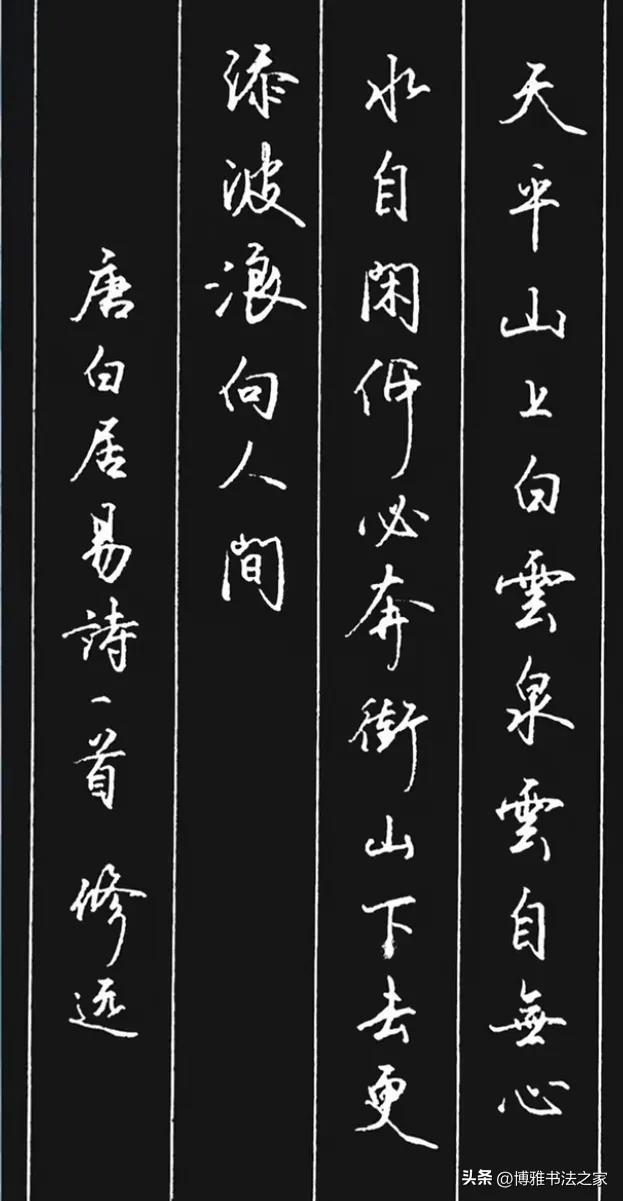 天平山上白雲泉雲自無心
水自閑何必奔衝山下去更
添波浪向人間
唐白居易詩一首 修远
头条 @博雅书法之家